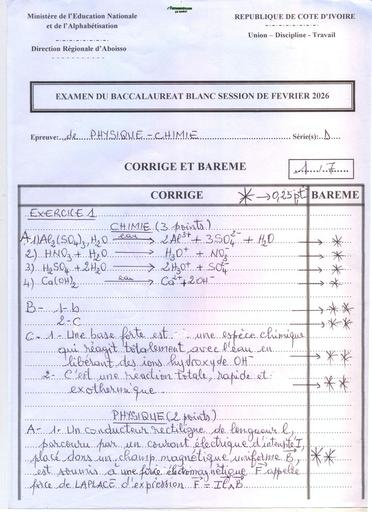 Ministère de l'Education Nationale
et de l'Alphabétisation
Direction Régionale d'Aboisso
REPUBLIQUE DE COTE D'IVOIRE
Union – Discipline - Travail
EXAMEN DU BACCALAUREAT BLANC SESSION DE FEVRIER 2026
Epreuve: de PHYSIQUE-CHIMIE Série(s): D
CORRIGE ET BAREME 1/7
CORRIGE *→0,25pt BAREME
EXERCICE 1
CHIMIE (3 points)
A. 1) Al₂(SO₄)₃, H₂O eau→ 2Al³⁺ + 3SO₄²⁻ + H₂O → *
2) HNO₃ + H₂O → H₃O⁺ + NO₃⁻ → *
3) H₂SO₄ + 2H₂O → 2H₃O⁺ + SO₄²⁻ → *
4) Ca(OH)₂ eau→ Ca²⁺ + 2OH⁻ → *
B- 1-b → **
2-C → **
C- 1- Une base forte est une espèce chimique
qui réagit totalement avec l'eau en
libérant des ions hydroxyde OH⁻ → **
2- C'est une réaction totale, rapide et
exothermique → **
PHYSIQUE (2 points)
A- 1- Un conducteur rectiligne de longueur l,
parcouru par un courant électrique d'intensité I,
placé dans un champ magnétique uniforme B⃗, **
est soumis à une force électromagnétique F⃗ appelée
force de LAPLACE d'expression F⃗ = Il⃗∧B⃗.